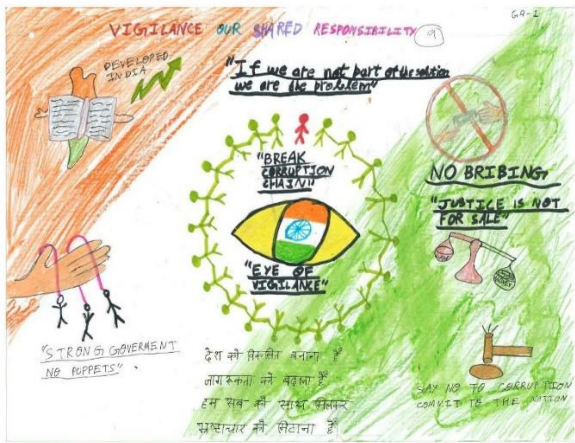 VIGILANCE OUR SHARED RESPONSIBILITY 9
GA-1
DEVELOPED
INDIA
"If we are not part of the solution
we are the problem"
"BREAK
CORRUPTION
CHAIN"
"EYE OF
VIGILANCE"
NO BRIBING
"JUSTICE IS NOT
FOR SALE"
MONEY
"STRONG GOVERMENT
NO PUPPETS".
देश को विकसित बनाना है
जागरूकता को बढ़ाना है
हम सब को साथ मिलकर
भ्रष्टाचार को मिटाना है
SAY NO TO CORRUPTION
COMMIT TO THE NATION